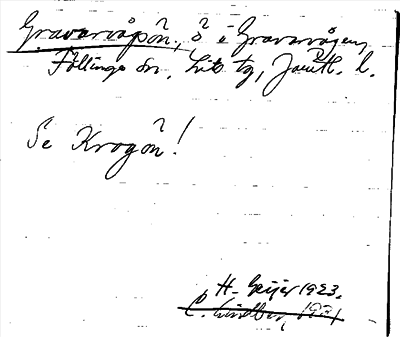 Gravarvågön, ö i Gravarvågen,
Föllinge sn, Lits tg, Jämtl. l.
Se Krogön!
H. Geijer 1923.
C. Lindberg, 1921